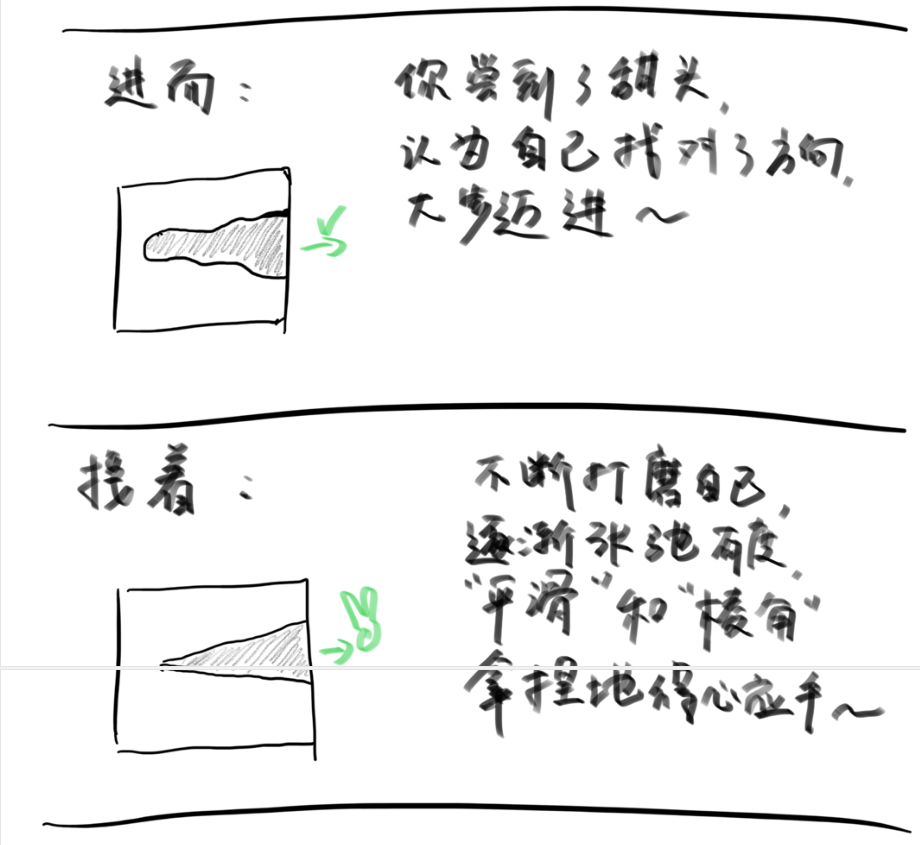 进而：
你尝到了甜头，
认为自己找对了方向，
大步迈进～
接着：
不断打磨自己，
逐渐张弛有度，
“平滑”和“棱角”
拿捏地得心应手～